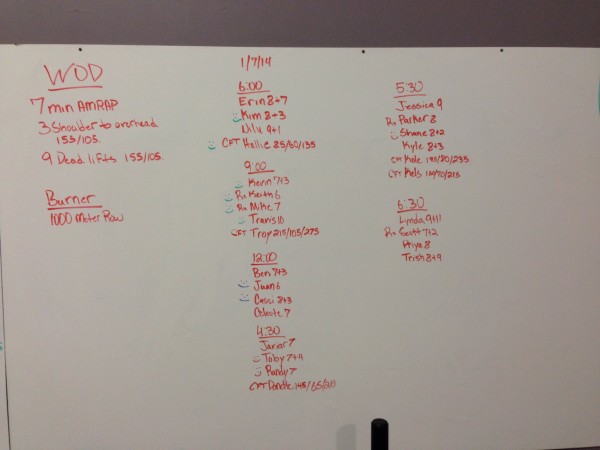 WOD
7 min AMRAP
3 Shoulder to overhead
155/105.
9 Dead lifts 155/105.
Burner
1000 Meter Row
1/7/14
6:00
Erin 8+7
Kim 8+3
9+1
CFT Hallie 85/50/135
9:00
Kevin 7+3
Rx Keith 6
Rx Mike 7
Travis 10
CFT Troy 215/105/275
12:00
Ben 7+3
Juan 6
Cassi 8+3
Celeste 7
4:30
7
Toby 7+4
Randy 7
CFT 145/65/
5:30
Jessica 9
Rx Parker 8
Shane 8+2
Kyle 8+3
CFT Kole /80/235
CFT Kels /70/215
6:30
Lynda 9+11
Rx Scott 7+2
8
Trish 8+9